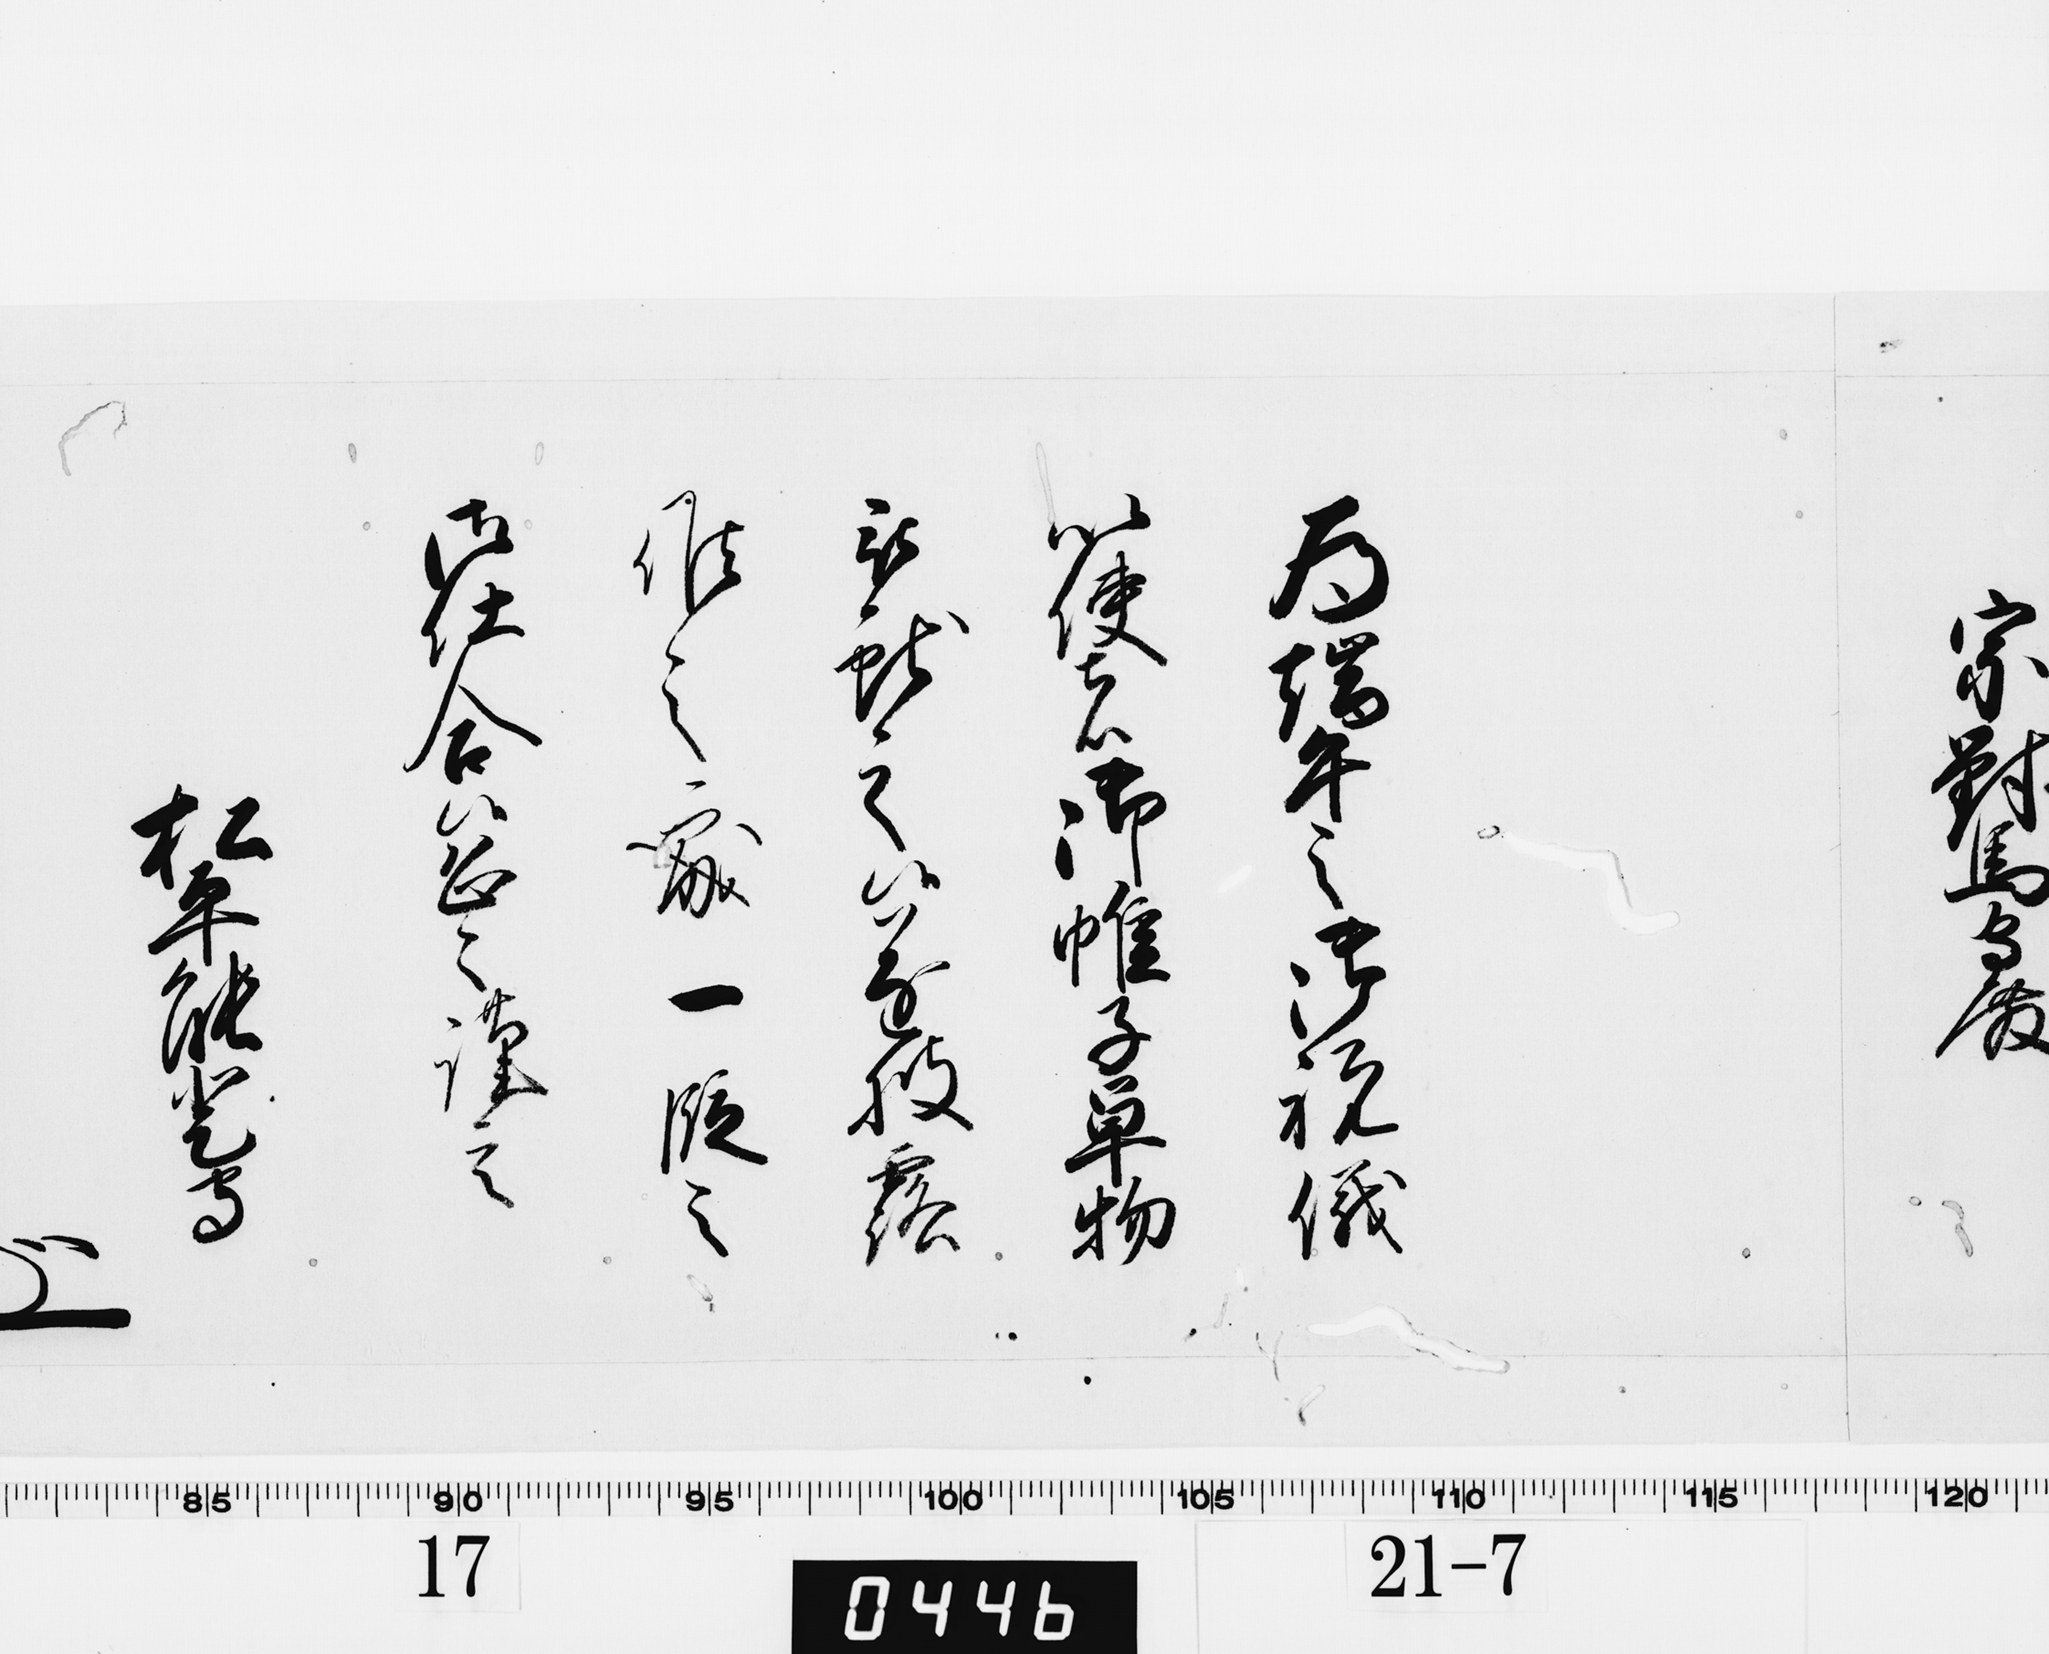 宗對馬守殿
為端午之御祝儀
以使者御帷子単物
被献之候遂披露
候之處一段之
御仕合候恐々謹言
松平能登守
85 90 95 100 105 110 115 120
17
0446
21-7